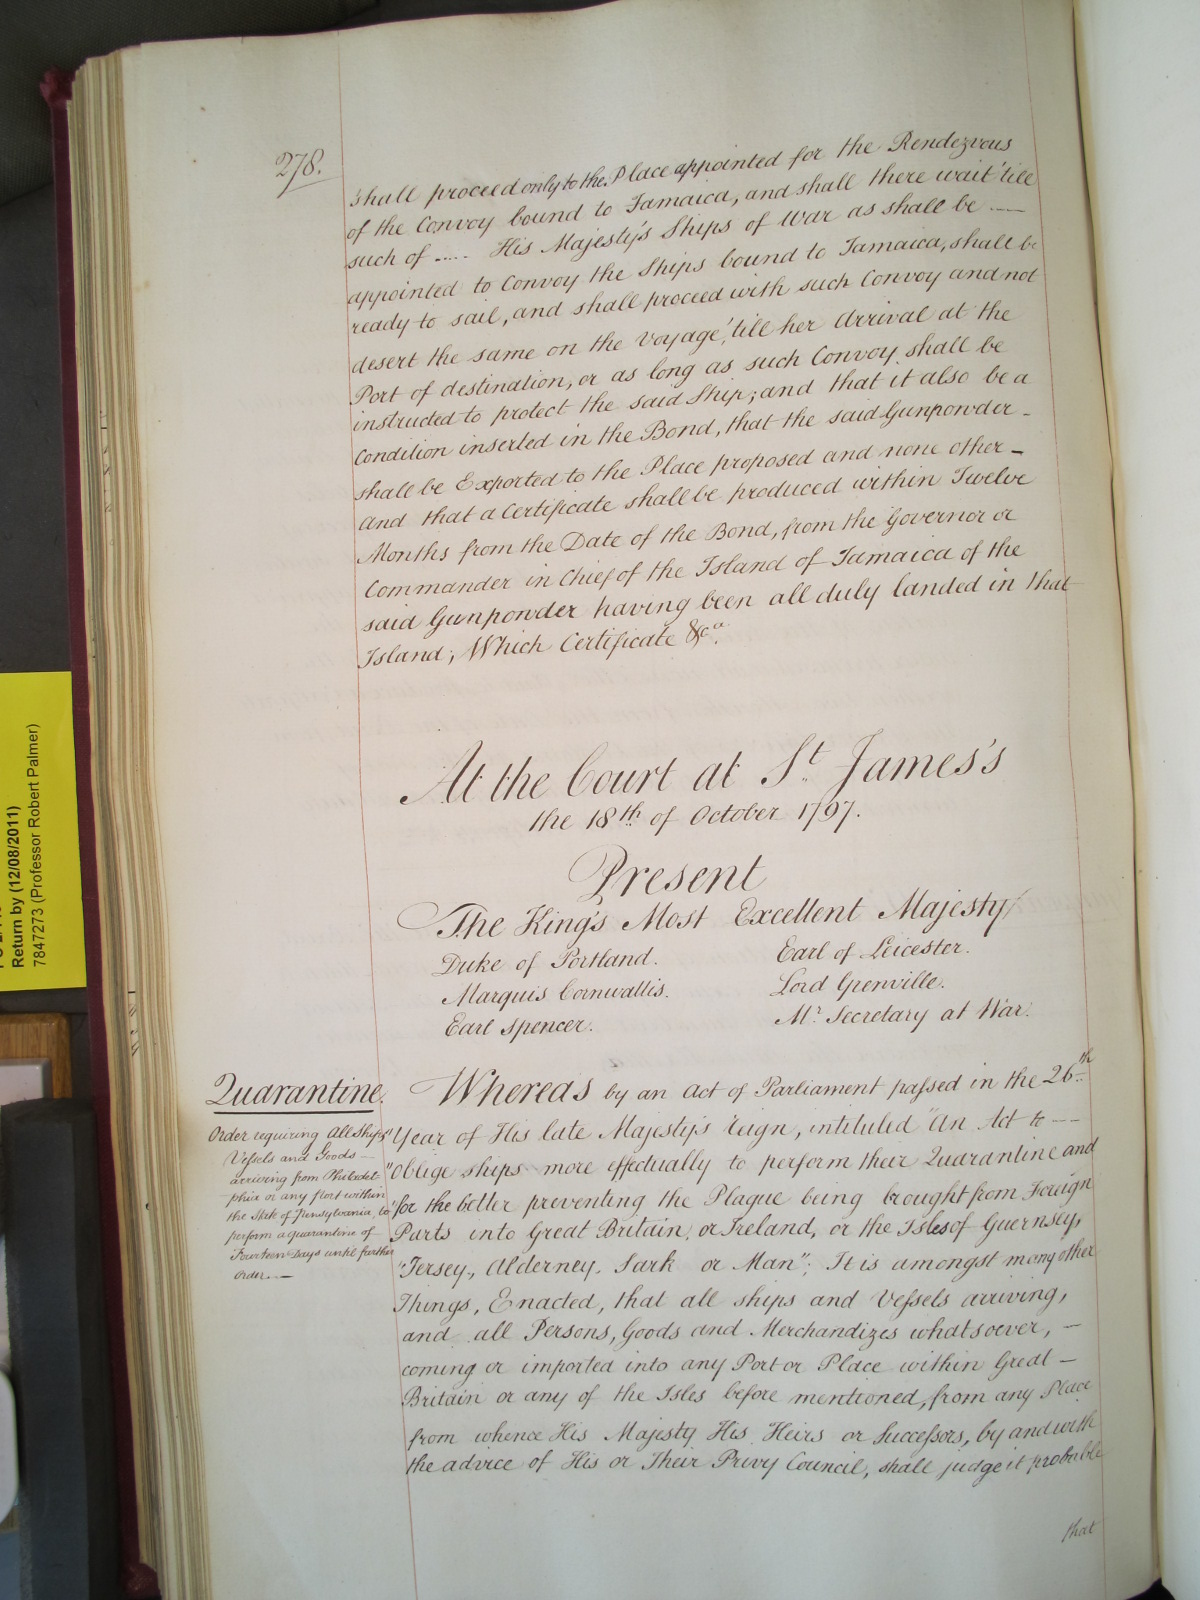 278.
shall proceed only to the Place appointed for the Rendezvous
of the Convoy bound to Jamaica, and shall there wait 'till
such of ..... His Majesty's Ships of War as shall be —
appointed to Convoy the Ships bound to Jamaica, shall be
ready to sail, and shall proceed with such Convoy and not
desert the same on the Voyage, 'till her Arrival at the
Port of destination, or as long as such Convoy shall be
instructed to protect the said Ship; and that it also be a
Condition inserted in the Bond, that the said Gunpowder -
shall be Exported to the Place proposed and none other -
and that a Certificate shall be produced within Twelve
Months from the Date of the Bond, from the Governor or
Commander in Chief of the Island of Jamaica of the
said Gunpowder having been all duly landed in that
Island; Which Certificate &ca.
At the Court at St. James's
the 18th. of October 1797.
Present
The King's Most Excellent Majesty
Duke of Portland. Earl of Leicester.
Marquis Cornwallis. Lord Grenville.
Earl Spencer. Mr. Secretary at War.
Quarantine.
Order requiring All Ships
Vessels and Goods —
arriving from Philadel-
phia or any port within
the State of Pennsylvania, to
perform a quarantine of
Fourteen Days until further
Order. —
Whereas by an Act of Parliament passed in the 26th.
Year of His late Majesty's reign, intituled "An Act to —
"oblige ships more effectually to perform their Quarantine and
"for the better preventing the Plague being brought from Foreign
Parts into Great Britain, or Ireland, or the Isles of Guernsey,
"Jersey, Alderney, Sark or Man"; It is amongst many other
Things, Enacted, that all ships and Vessels arriving,
and all Persons, Goods and Merchandizes whatsoever, —
coming or imported into any Port or Place within Great —
Britain or any of the Isles before mentioned, from any Place
from whence His Majesty His Heirs or Successors, by and with
the advice of His or Their Privy Council, shall judge it probable
that
Return by (12/08/2011)
7847273 (Professor Robert Palmer)